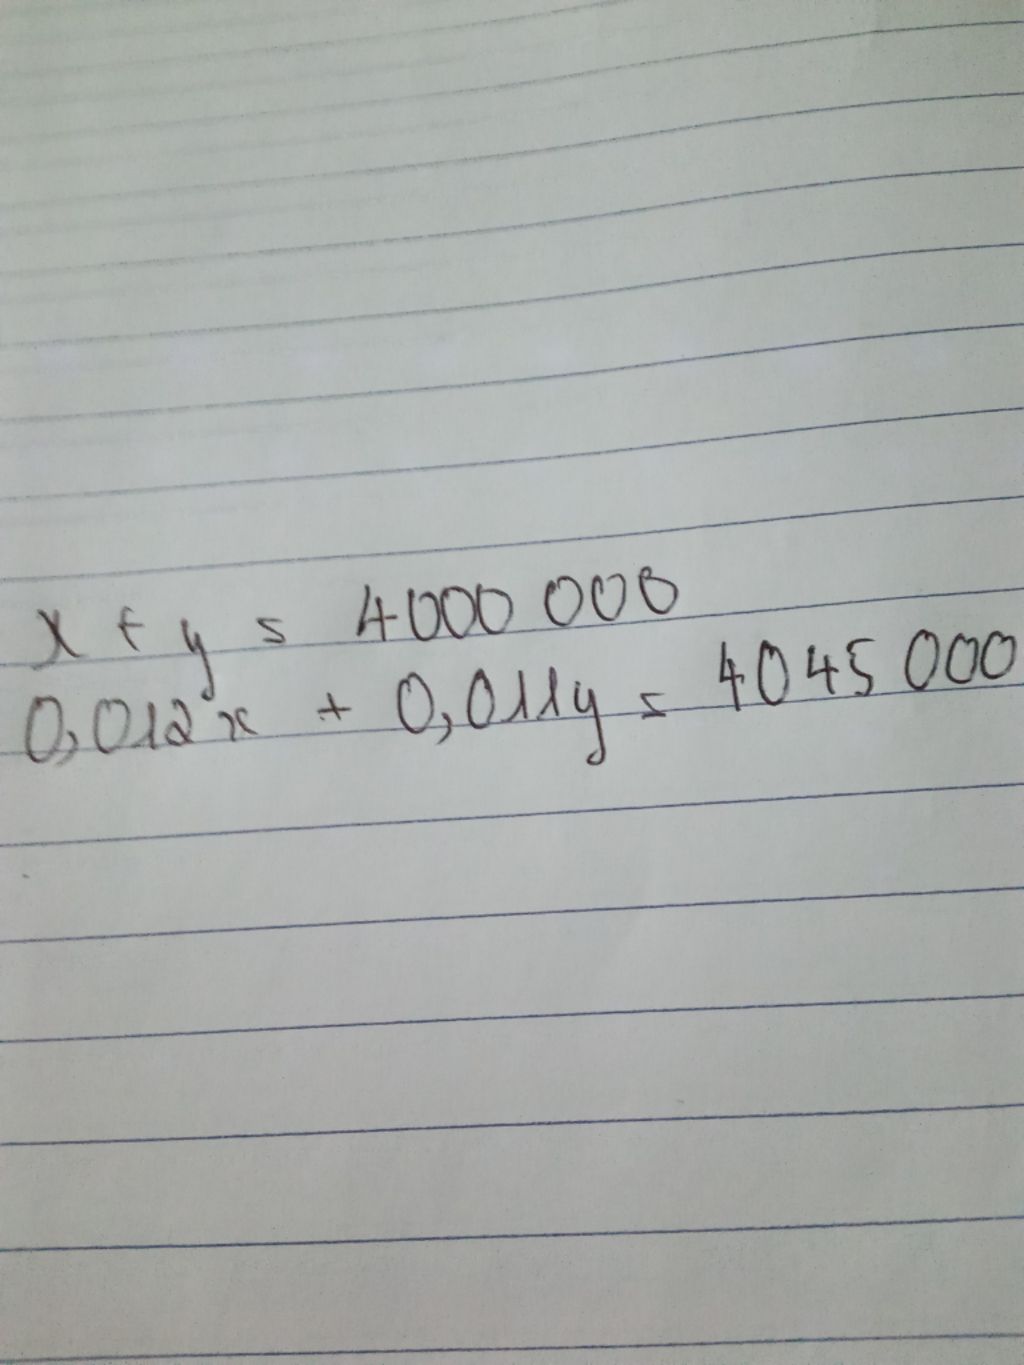 x + y = 4000 000
0,012x + 0,011y = 4045 000